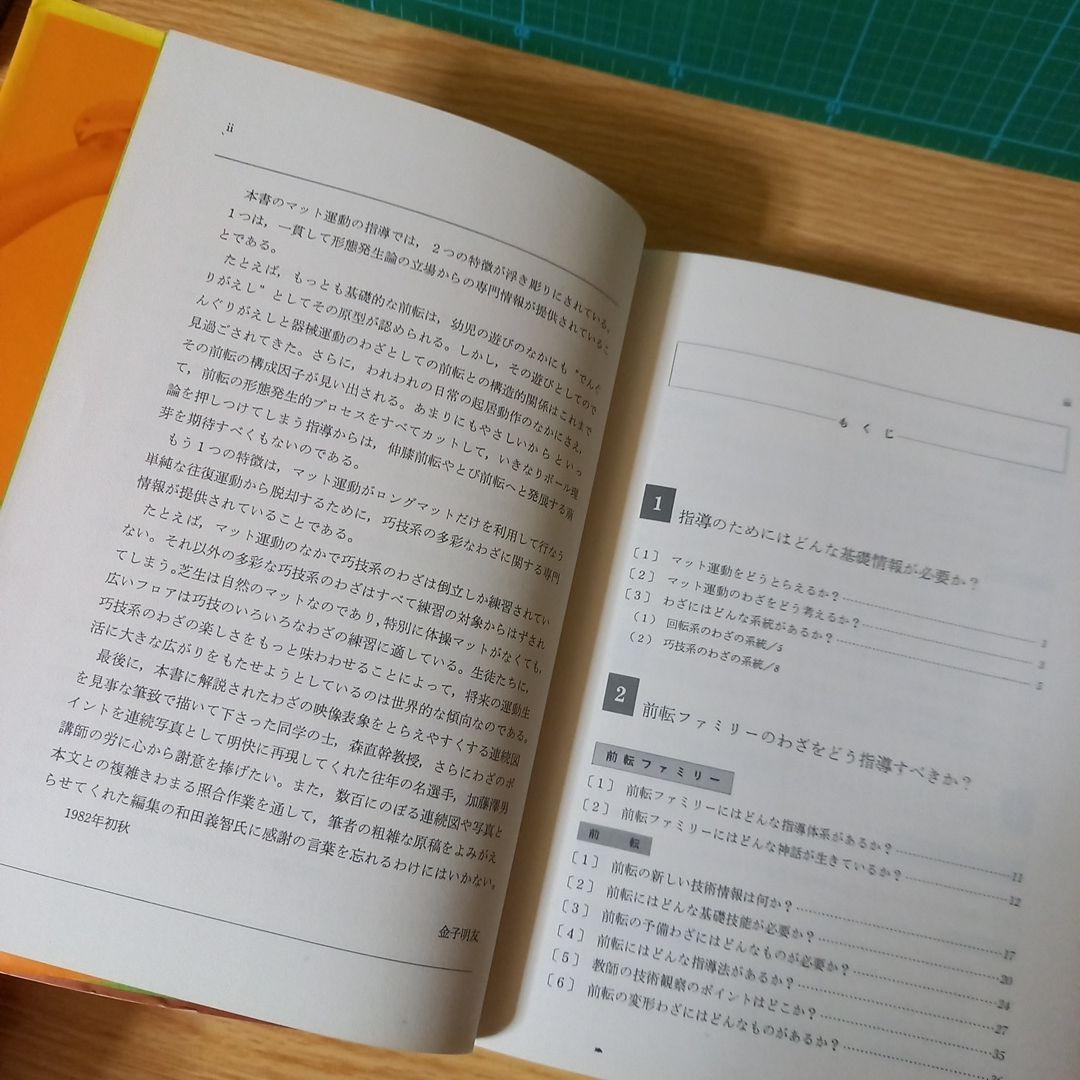 ii
本書のマット運動の指導では，2つの特徴が浮き彫りにされている。
1つは，一貫して形態発生論の立場からの専門情報が提供されているこ
とである。
たとえば，もっとも基礎的な前転は，幼児の遊びのなかにも“でんぐ
りがえし”としてその原型が認められる。しかし，その遊びとしてので
んぐりがえしと器械運動のわざとしての前転との構造的関係はこれまで
見過ごされてきた。さらに，われわれの日常の起居動作のなかにさえ，
その前転の構成因子が見い出される。あまりにもやさしいからといっ
て，前転の形態発生的プロセスをすべてカットして，いきなりボール理
論を押しつけてしまう指導からは，伸膝前転やとび前転へと発展する萌
芽を期待すべくもないのである。
もう1つの特徴は，マット運動がロングマットだけを利用して行なう
単純な往復運動から脱却するために，巧技系の多彩なわざに関する専門
情報が提供されていることである。
たとえば，マット運動のなかで巧技系のわざは倒立しか練習されてい
ない。それ以外の多彩な巧技系のわざはすべて練習の対象からはずされ
てしまう。芝生は自然のマットなのであり，特別に体操マットがなくても，
広いフロアは巧技のいろいろなわざの練習に適している。生徒たちに，
巧技系のわざの楽しさをもっと味わわせることによって，将来の運動生
活に大きな広がりをもたせようとしているのは世界的な傾向なのである。
最後に，本書に解説されたわざの映像表象をとらえやすくする連続図
を見事な筆致で描いて下さった同学の士，森直幹教授，さらにわざのポ
イントを連続写真として明快に再現してくれた往年の名選手，加藤澤男
講師の労に心から謝意を捧げたい。また，数百にのぼる連続図や写真と
本文との複雑きわまる照合作業を通して，筆者の粗雑な原稿をよみがえ
らせてくれた編集の和田義智氏に感謝の言葉を忘れるわけにはいかない。
1982年初秋
金子明友
iii
もくじ
1 指導のためにはどんな基礎情報が必要か？
〔1〕 マット運動をどうとらえるか？……1
〔2〕 マット運動のわざをどう考えるか？……3
〔3〕 わざにはどんな系統があるか？……5
（1） 回転系のわざの系統／5
（2） 巧技系のわざの系統／8
2 前転ファミリーのわざをどう指導すべきか？
前転ファミリー
〔1〕 前転ファミリーにはどんな指導体系があるか？……11
〔2〕 前転ファミリーにはどんな神話が生きているか？……12
前 転
〔1〕 前転の新しい技術情報は何か？……17
〔2〕 前転にはどんな基礎技能が必要か？……20
〔3〕 前転の予備わざにはどんなものが必要か？……24
〔4〕 前転にはどんな指導法があるか？……27
〔5〕 教師の技術観察のポイントはどこか？……35
〔6〕 前転の変形わざにはどんなものがあるか？……